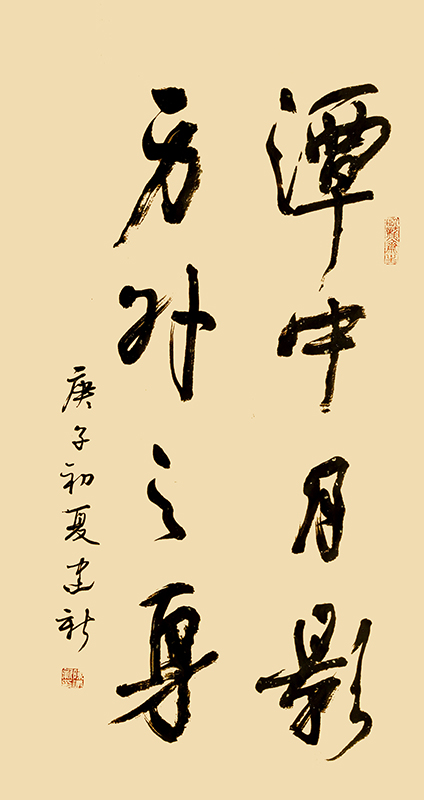 潭中月影
方外之
庚子初夏建新